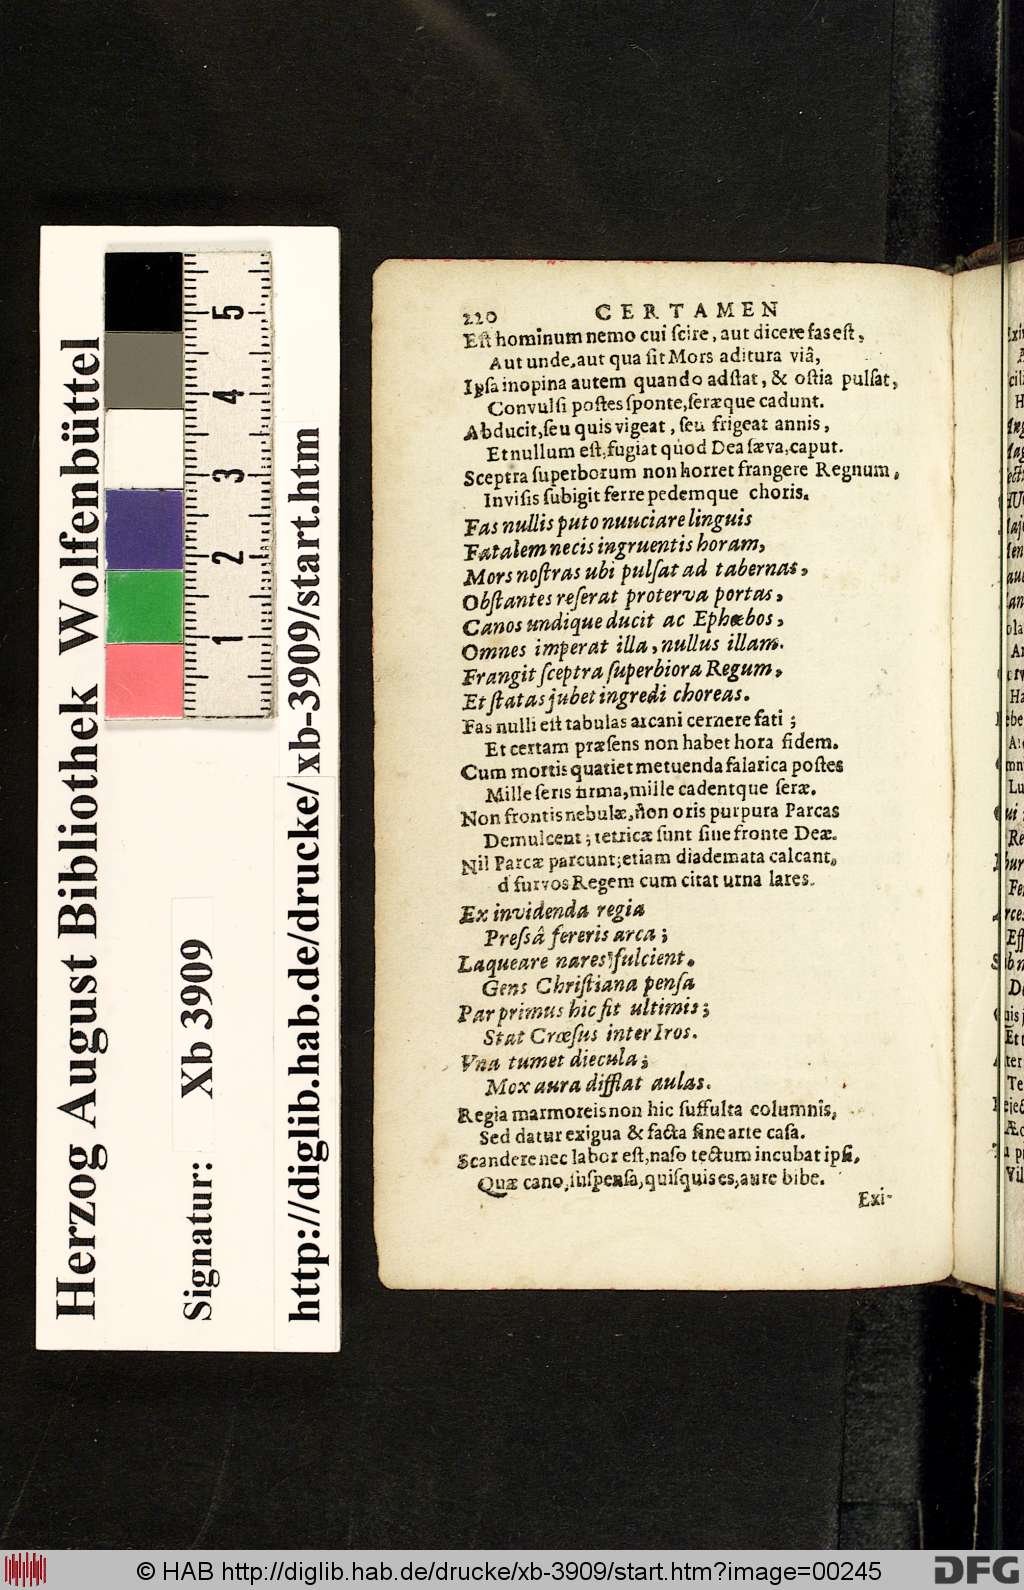 Herzog August Bibliothek Wolfenbüttel
Signatur: Xb 3909
http://diglib.hab.de/drucke/xb-3909/start.htm
5
4
3
2
1
220 CERTAMEN
Est hominum nemo cui scire, aut dicere fas est,
Aut unde, aut qua sit Mors aditura viâ,
Ipsa inopina autem quando adstat, & ostia pulsat,
Convulsi postes sponte, seræque cadunt.
Abducit, seu quis vigeat, seu frigeat annis,
Et nullum est, fugiat quod Dea sæva, caput.
Sceptra superborum non horret frangere Regnum,
Invisis subigit ferre pedemque choris.
Fas nullis puto nuuciare linguis
Fatalem necis ingruentis horam,
Mors nostras ubi pulsat ad tabernas,
Obstantes reserat proterva portas,
Canos undique ducit ac Ephœbos,
Omnes imperat illa, nullus illam.
Frangit sceptra superbiora Regum,
Et statas jubet ingredi choreas.
Fas nulli est tabulas arcani cernere fati;
Et certam præsens non habet hora fidem.
Cum mortis quatiet metuenda falarica postes
Mille seris firma, mille cadentque seræ.
Non frontis nebulæ, non oris purpura Parcas
Demulcent; tetricæ sunt sine fronte Deæ.
Nil Parcæ parcunt; etiam diademata calcant,
d furvos Regem cum citat urna lares.
Ex invidenda regia
Pressâ fereris arca;
Laqueare nares fulcient.
Gens Christiana pensa
Par primus hic fit ultimis;
Stat Cræsus inter Iros.
Vna tumet diecula;
Mox aura difflat aulas.
Regia marmoreis non hic suffulta columnis,
Sed datur exigua & facta sine arte casa.
Scandere nec labor est, naso tectum incubat ipsi,
Quæ cano, suspensa, quisquis es, aure bibe.
Exi-
© HAB http://diglib.hab.de/drucke/xb-3909/start.htm?image=00245
DFG